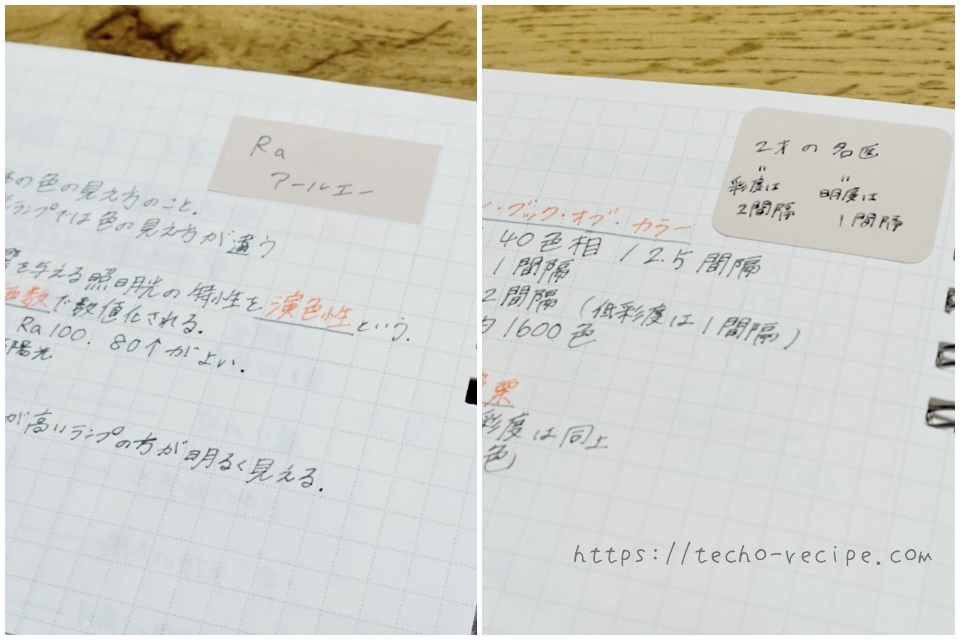 Ra
アールエー
の色の見え方のこと.
ランプでは色の見え方が違う
を与える照明光の特性を演色性という.
数で数値化される.
Ra100. 80↑がよい.
陽光
が高いランプの方が明るく見える.
2才の名医
彩度は 明度は
2間隔 1間隔
ン・ブック・オブ・カラー
40色相 / 2.5間隔
1間隔
2間隔 (低彩度は1間隔)
1600色
彩度は同上
色
https://techo-recipe.com